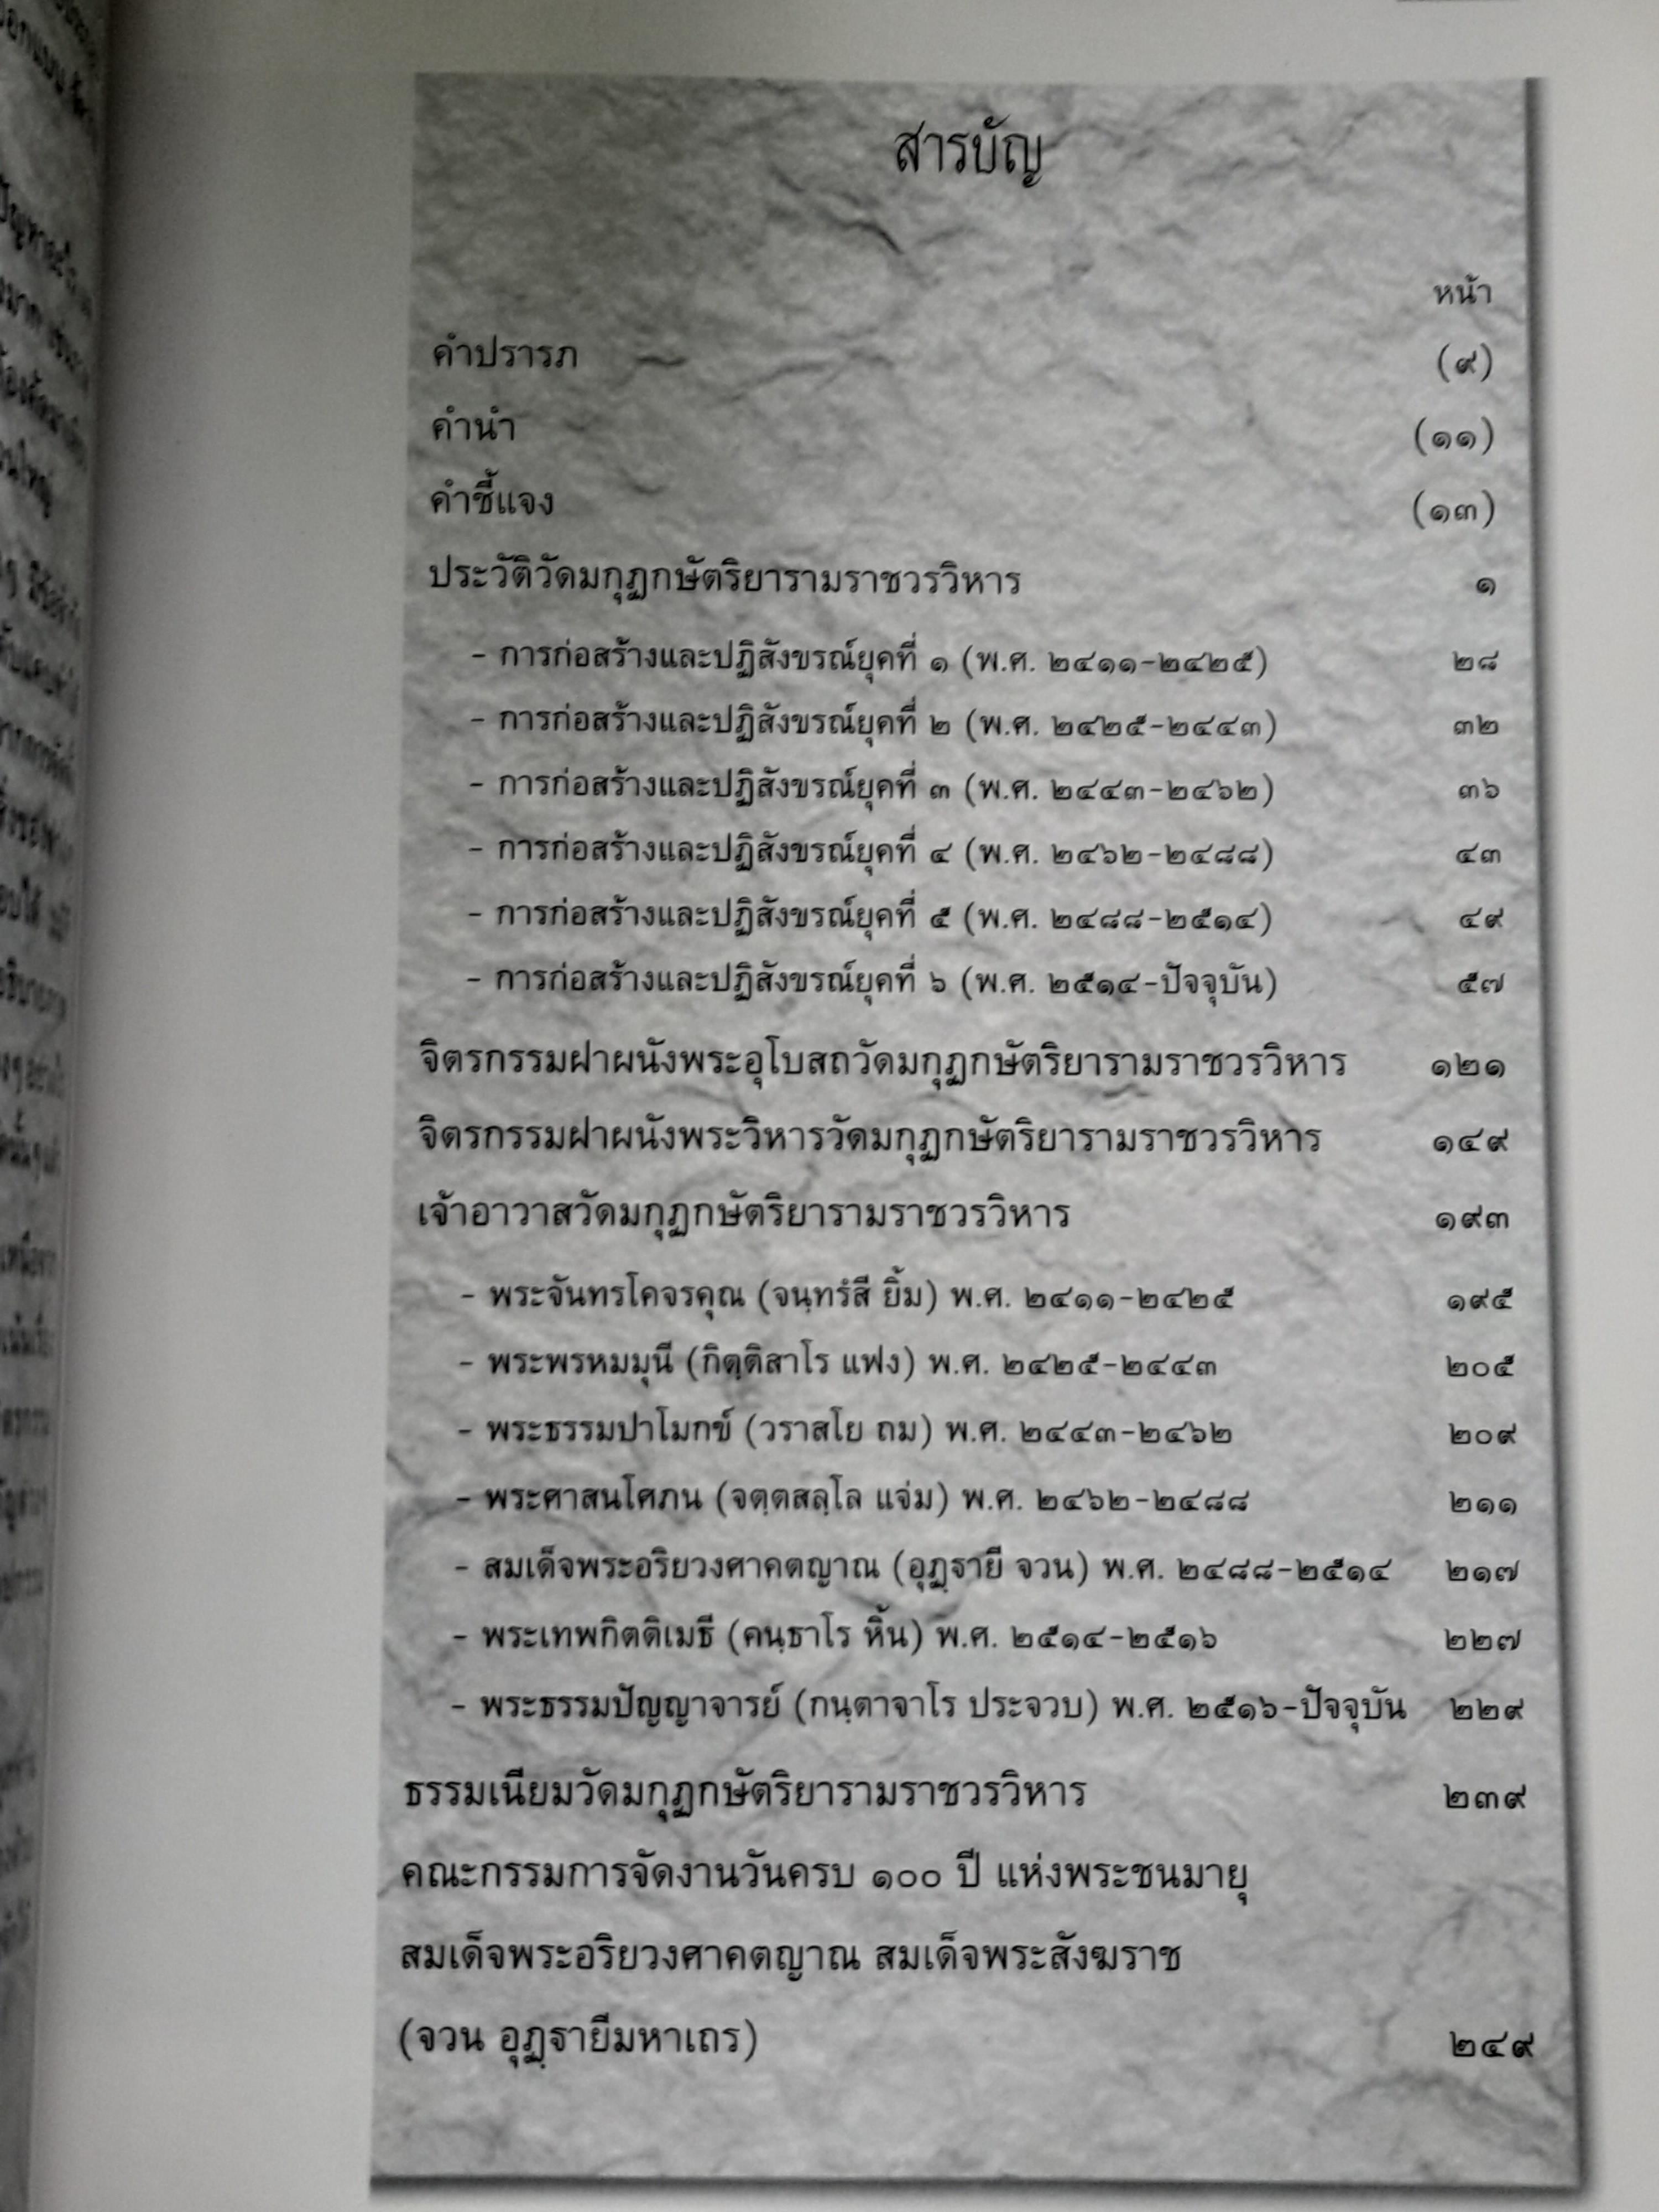 สารบัญ
หน้า
คำปรารภ (๙)
คำนำ (๑๑)
คำชี้แจง (๑๓)
ประวัติวัดมกุฏกษัตริยารามราชวรวิหาร ๑
- การก่อสร้างและปฏิสังขรณ์ยุคที่ ๑ (พ.ศ. ๒๔๑๑-๒๔๒๕) ๒๘
- การก่อสร้างและปฏิสังขรณ์ยุคที่ ๒ (พ.ศ. ๒๔๒๕-๒๔๔๓) ๓๒
- การก่อสร้างและปฏิสังขรณ์ยุคที่ ๓ (พ.ศ. ๒๔๔๓-๒๔๖๒) ๓๖
- การก่อสร้างและปฏิสังขรณ์ยุคที่ ๔ (พ.ศ. ๒๔๖๒-๒๔๘๘) ๔๓
- การก่อสร้างและปฏิสังขรณ์ยุคที่ ๕ (พ.ศ. ๒๔๘๘-๒๕๑๔) ๔๙
- การก่อสร้างและปฏิสังขรณ์ยุคที่ ๖ (พ.ศ. ๒๕๑๔-ปัจจุบัน) ๕๗
จิตรกรรมฝาผนังพระอุโบสถวัดมกุฏกษัตริยารามราชวรวิหาร ๑๒๑
จิตรกรรมฝาผนังพระวิหารวัดมกุฏกษัตริยารามราชวรวิหาร ๑๔๙
เจ้าอาวาสวัดมกุฏกษัตริยารามราชวรวิหาร ๑๙๓
- พระจันทรโคจรคุณ (จนฺทรํสี ยิ้ม) พ.ศ. ๒๔๑๑-๒๔๒๕ ๑๙๕
- พระพรหมมุนี (กิตฺติสาโร แฟง) พ.ศ. ๒๔๒๕-๒๔๔๓ ๒๐๕
- พระธรรมปาโมกข์ (วราสโย ถม) พ.ศ. ๒๔๔๓-๒๔๖๒ ๒๐๙
- พระศาสนโศภน (จตฺตสลฺโล แจ่ม) พ.ศ. ๒๔๖๒-๒๔๘๘ ๒๑๑
- สมเด็จพระอริยวงศาคตญาณ (อุฏฺฐายี จวน) พ.ศ. ๒๔๘๘-๒๕๑๔ ๒๑๗
- พระเทพกิตติเมธี (คนฺธาโร หิ้น) พ.ศ. ๒๕๑๔-๒๕๑๖ ๒๒๗
- พระธรรมปัญญาจารย์ (กนฺตาจาโร ประจวบ) พ.ศ. ๒๕๑๖-ปัจจุบัน ๒๒๙
ธรรมเนียมวัดมกุฏกษัตริยารามราชวรวิหาร ๒๓๙
คณะกรรมการจัดงานวันครบ ๑๐๐ ปี แห่งพระชนมายุ
สมเด็จพระอริยวงศาคตญาณ สมเด็จพระสังฆราช
(จวน อุฏฺฐายีมหาเถร) ๒๔๙